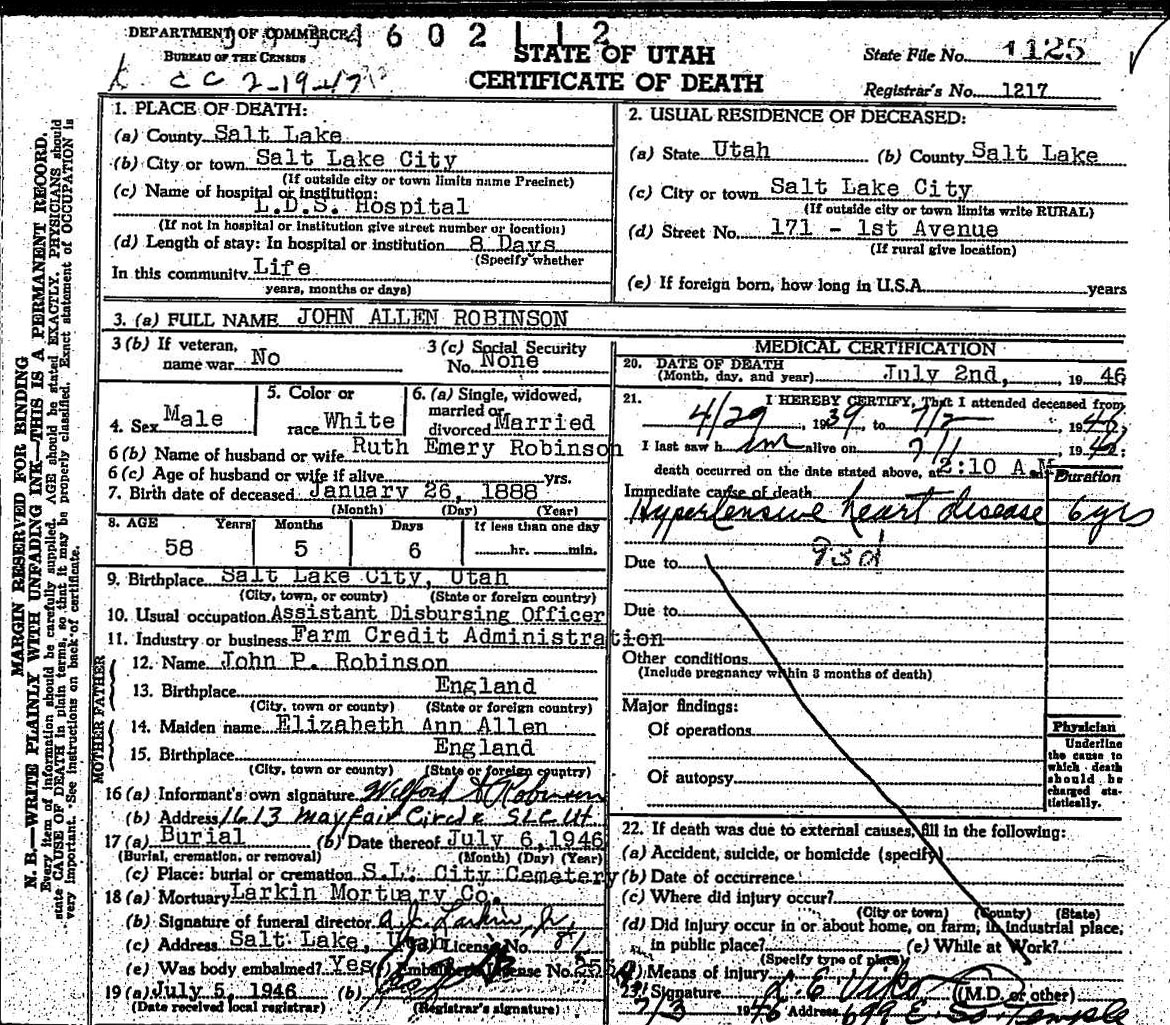 DEPARTMENT OF COMMERCE 1602112
BUREAU OF THE CENSUS
CC 2-19-47
STATE OF UTAH
CERTIFICATE OF DEATH
State File No. 1125
Registrar's No. 1217
MARGIN RESERVED FOR BINDING
N. B.—WRITE PLAINLY WITH UNFADING INK—THIS IS A PERMANENT RECORD.
Every item of information should be carefully supplied. AGE should be stated EXACTLY. PHYSICIANS should
state CAUSE OF DEATH in plain terms, so that it may be properly classified. Exact statement of OCCUPATION is
very important. See instructions on back of certificate.
1. PLACE OF DEATH:
(a) County Salt Lake
(b) City or town Salt Lake City
(If outside city or town limits name Precinct)
(c) Name of hospital or institution:
L.D.S. Hospital
(If not in hospital or institution give street number or location)
(d) Length of stay: In hospital or institution 8 Days
(Specify whether
In this community Life
years, months or days)
2. USUAL RESIDENCE OF DECEASED:
(a) State Utah (b) County Salt Lake
(c) City or town Salt Lake City
(If outside city or town limits write RURAL)
(d) Street No. 171 - 1st Avenue
(If rural give location)
(e) If foreign born, how long in U.S.A. years
3. (a) FULL NAME JOHN ALLEN ROBINSON
3 (b) If veteran,
name war No
3 (c) Social Security
No. None
4. Sex Male
5. Color or
race White
6. (a) Single, widowed,
married or
divorced Married
6 (b) Name of husband or wife Ruth Emery Robinson
6 (c) Age of husband or wife if alive yrs.
7. Birth date of deceased January 26, 1888
(Month) (Day) (Year)
8. AGE Years Months Days If less than one day
58 5 6 hr. min.
9. Birthplace Salt Lake City, Utah
(City, town, or county) (State or foreign country)
10. Usual occupation Assistant Disbursing Officer
11. Industry or business Farm Credit Administration
FATHER
12. Name John P. Robinson
13. Birthplace England
(City, town or county) (State or foreign country)
MOTHER
14. Maiden name Elizabeth Ann Allen
15. Birthplace England
(City, town or county) (State or foreign country)
16 (a) Informant's own signature Wilford A Robinson
(b) Address 1613 Mayfair Circle SLC Ut
17 (a) Burial (b) Date thereof July 6, 1946
(Burial, cremation, or removal) (Month) (Day) (Year)
(c) Place: burial or cremation S.L. City Cemetery
18 (a) Mortuary Larkin Mortuary Co.
(b) Signature of funeral director A.J. Larkin, Jr.
(c) Address Salt Lake, Utah (d) License No. 81
(e) Was body embalmed? Yes (f) Embalmer's License No.
19 (a) July 5, 1946 (b)
(Date received local registrar) (Registrar's signature)
MEDICAL CERTIFICATION
20. DATE OF DEATH
(Month, day, and year) July 2nd, 1946
21. I HEREBY CERTIFY, That I attended deceased from
4/29, 1939, to 7/2, 1946,
I last saw him alive on 7/1, 1946;
death occurred on the date stated above, at 2:10 A.M.
Duration
Immediate cause of death
Hypertensive heart disease 6 yrs
Due to 93d
Due to
Other conditions
(Include pregnancy within 3 months of death)
Major findings:
Of operations
Of autopsy
Physician
Underline
the cause to
which death
should be
charged sta-
tistically.
22. If death was due to external causes, fill in the following:
(a) Accident, suicide, or homicide (specify)
(b) Date of occurrence
(c) Where did injury occur?
(City or town) (County) (State)
(d) Did injury occur in or about home, on farm, in industrial place,
in public place? (e) While at Work?
(Specify type of place)
(f) Means of injury
23. Signature L. E. Viko (M.D. or other)
7/3 1946 Address 699 E. So. Temple